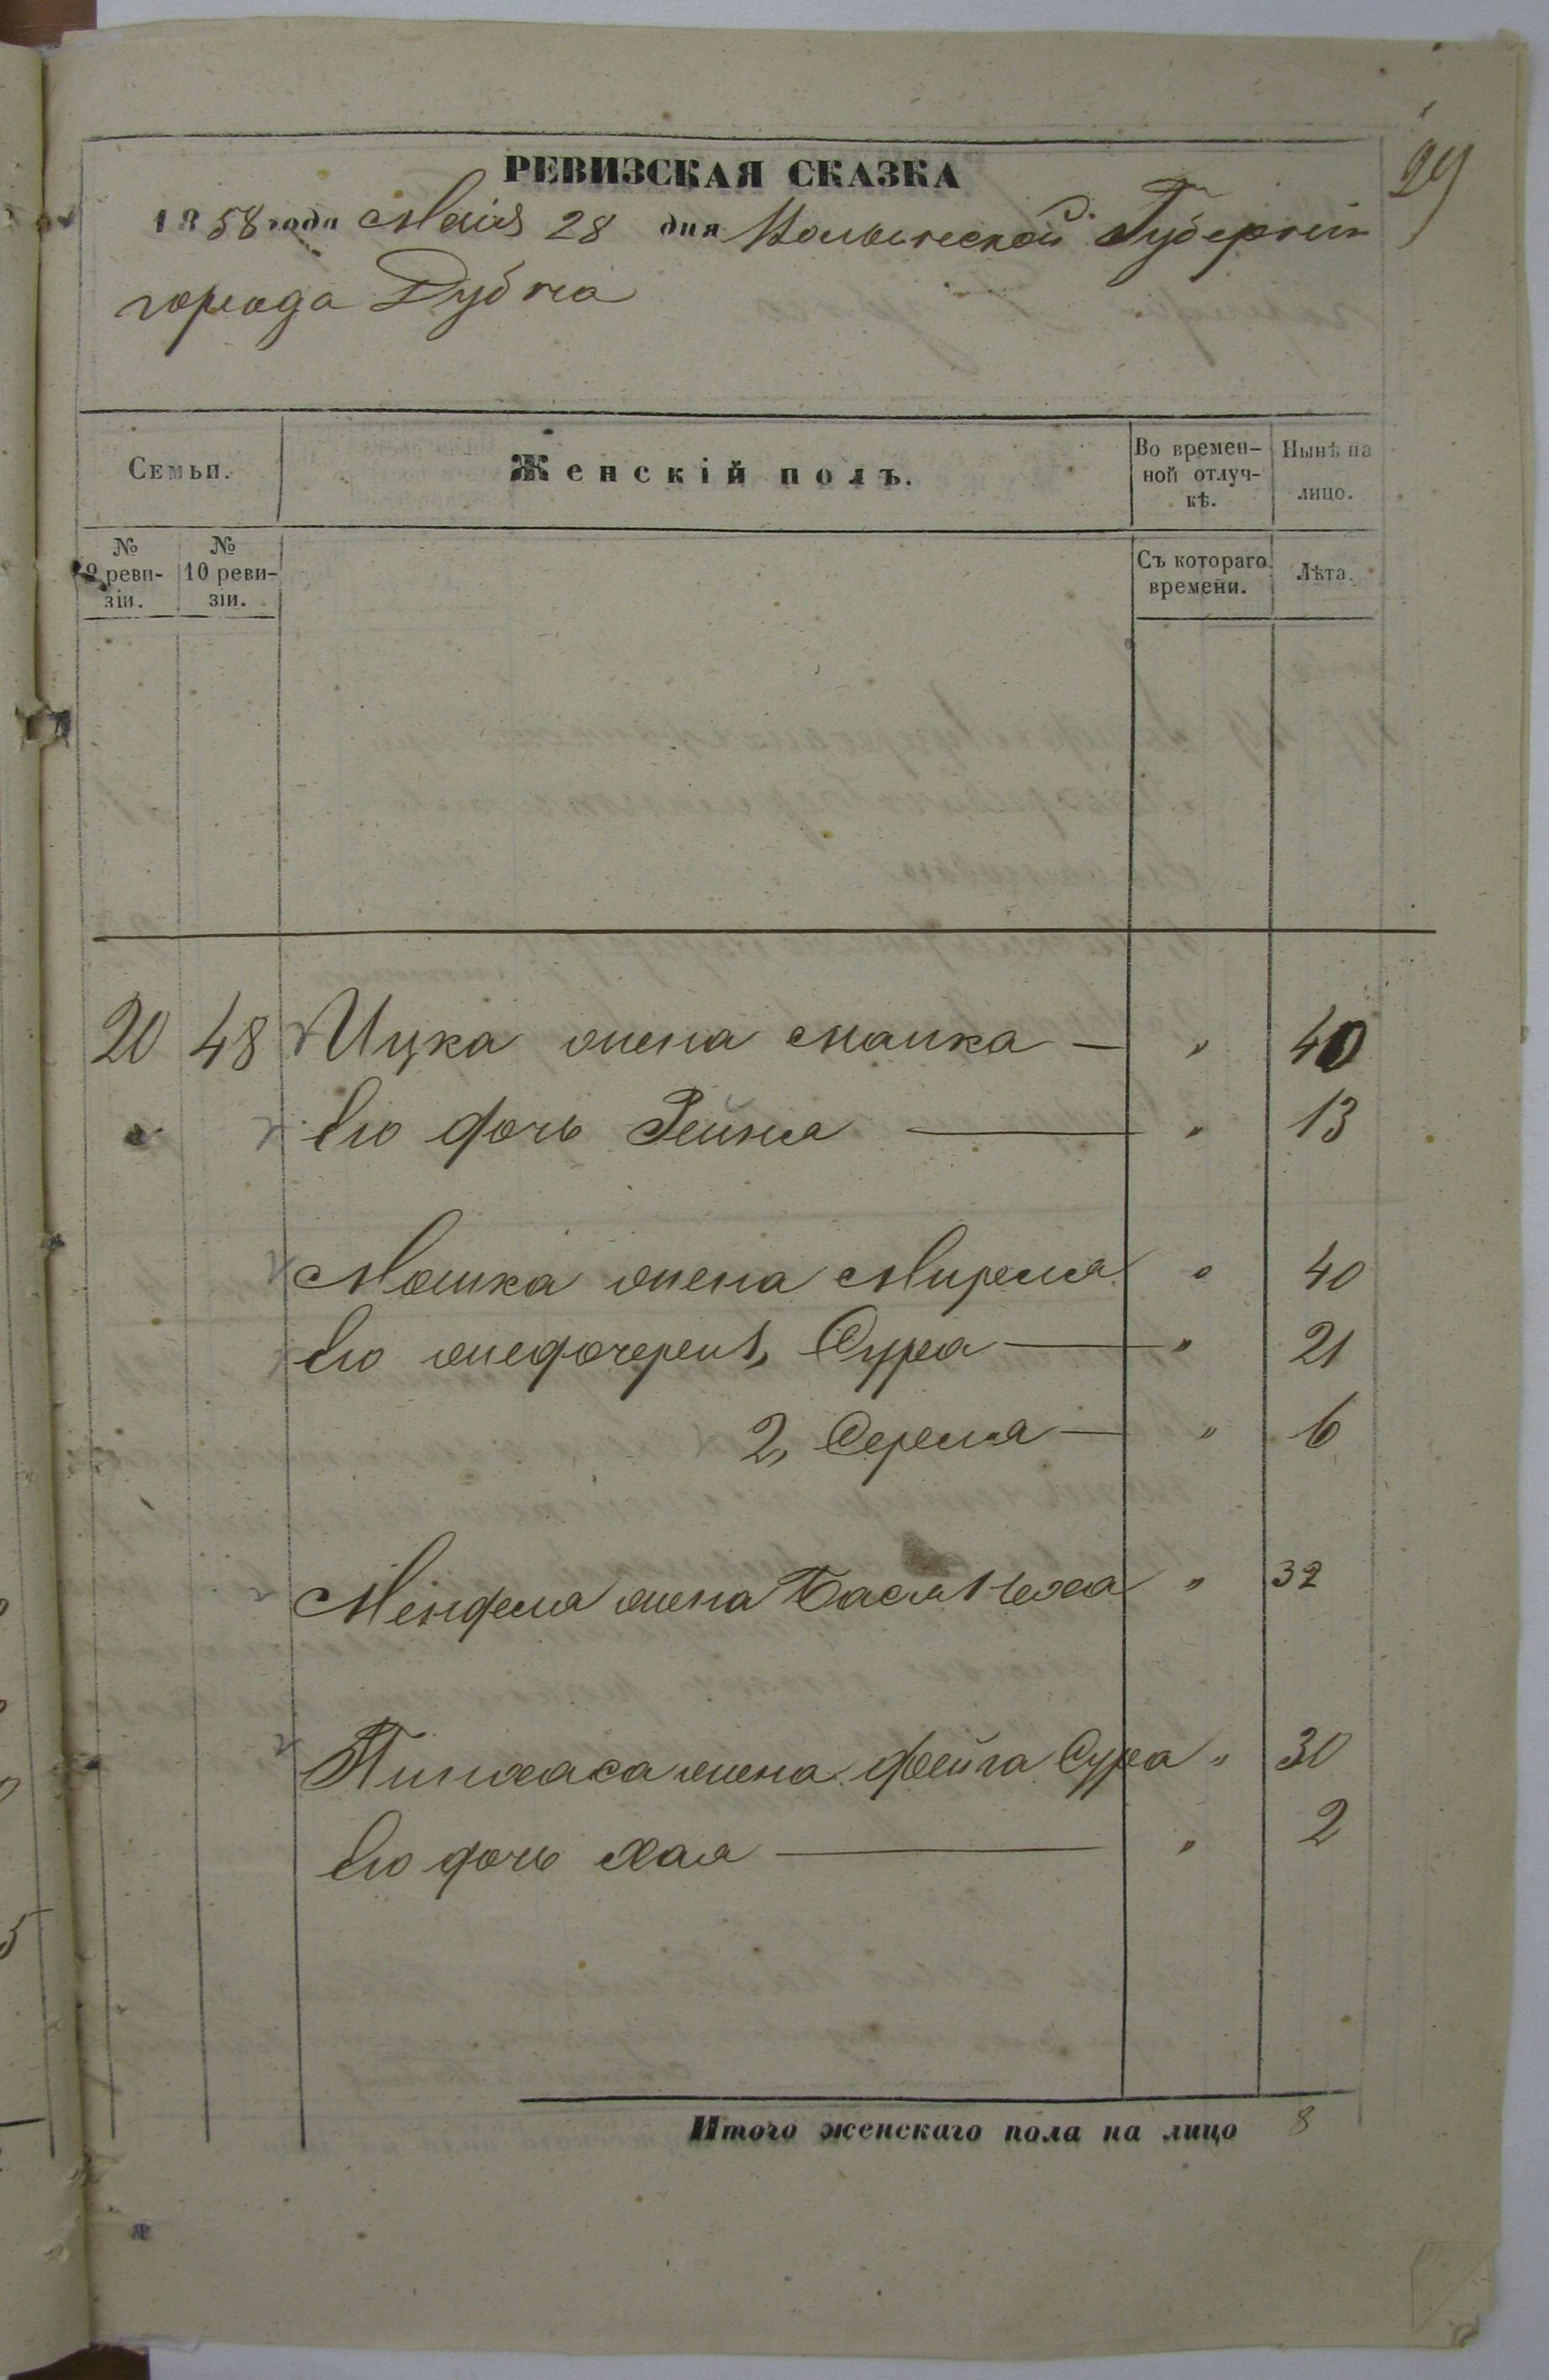 29
РЕВИЗСКАЯ СКАЗКА
1858 года Маія 28 дня Волынской Губерніи
города Дубна
Семьи. Женскій полъ. Во временной отлучкѣ. Нынѣ на лицо.
№ 9 ревизіи. № 10 ревизіи. Съ котораго времени. Лѣта.
20 48 Ицка жена " 40
Его дочь Рейзя " 13
Мошка жена Миреля " 40
Его же дочери 1, Сура " 21
2, Сереля " 6
Менделя жена Бася Неха " 32
Пинхаса жена Фейга Сура " 30
Его дочь Хая " 2
Итого женскаго пола на лицо 8